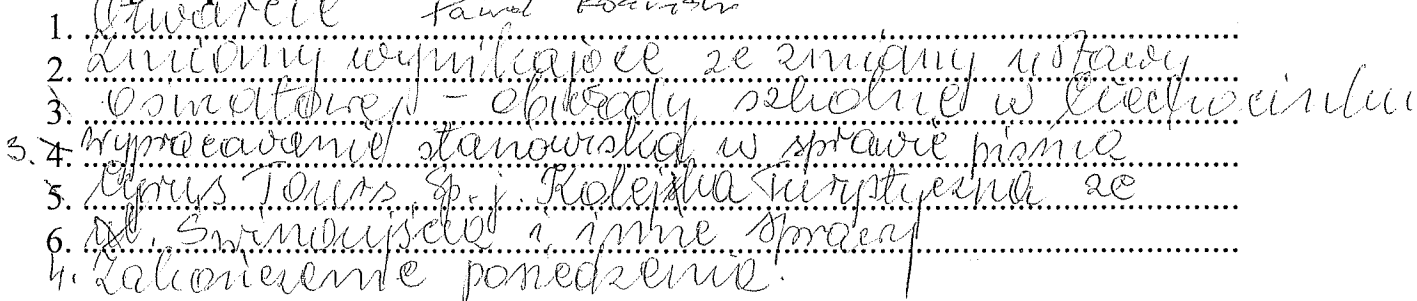 1. Otwarcie Paweł
2. Zmiany wynikające ze zmiany ustawy
3. oświatowej – obwody szkolne w Ciechocinku
3. 4. Wypracowanie stanowiska w sprawie pisma
5. Cyrus Tours Sp. j. Kolejka Turystyczna ze
6. Świnoujścia i inne sprawy
4. Zakończenie posiedzenia.